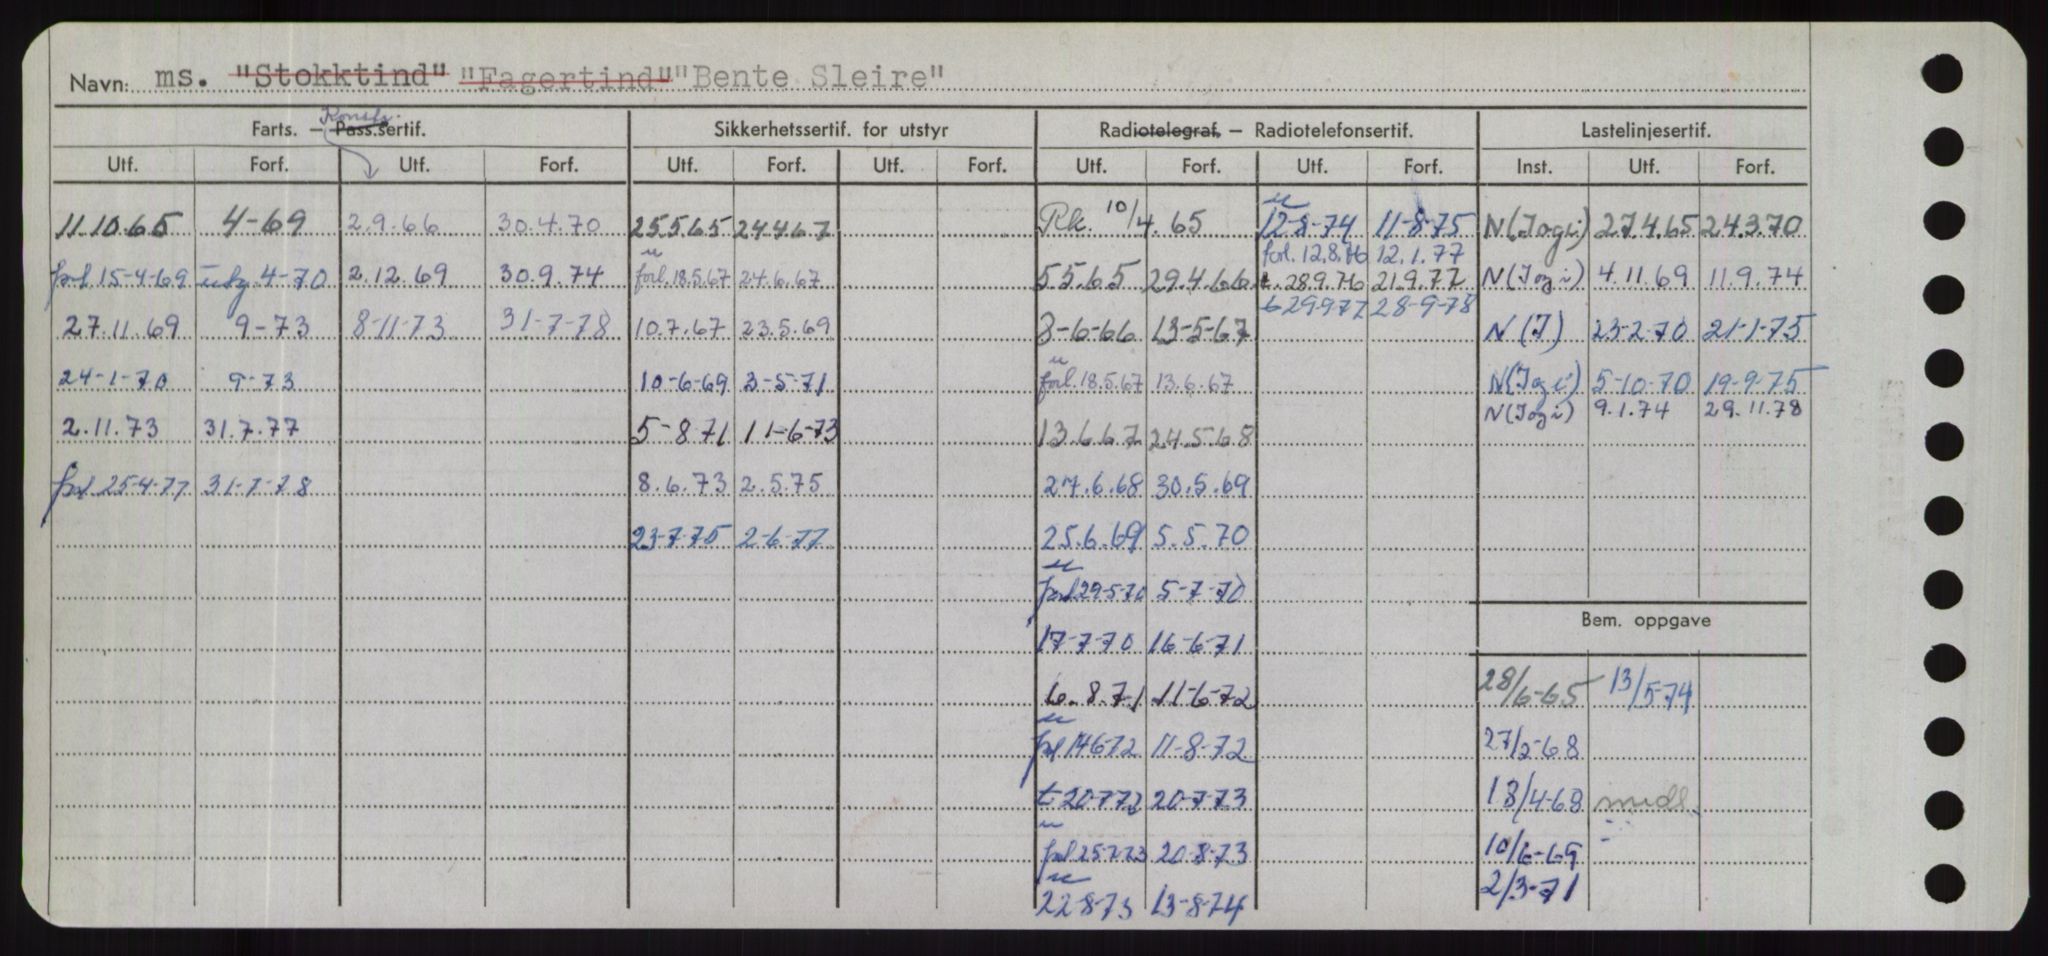 Navn: ms. "Stokktind" "Fagertind" "Bente Sleire"
Konstr.
Farts. — Pass.sertif. Sikkerhetssertif. for utstyr Radiotelegraf. — Radiotelefonsertif. Lastelinjesertif.
Utf. Forf. Utf. Forf. Utf. Forf. Utf. Forf. Utf. Forf. Utf. Forf. Inst. Utf. Forf.
11.10.65 4-69 2.9.66 30.4.70 25.5.65 24.4.67 Rk. 10/4.65 12-8-74 11-8-75 N(Jogi) 27.4.65 24.3.70
forl. 12.8.76 12.1.77
forl 15-4-69 utg 4-70 2.12.69 30.9.74 forl. 18.5.67 24.6.67 5.5.65 29.4.66 t. 28.9.76 21.9.77 N(Jogi) 4.11.69 11.9.74
t 29.9.77 28-9-78
27.11.69 9-73 8-11-73 31-7-78 10.7.67 23.5.69 3-6-66 13-5-67 N(J) 23-2-70 21-1-75
24-1-70 9-73 10-6-69 3-5-71 forl. 18.5.67 13.6.67 N(Jogi) 5-10-70 19-9-75
N(Jogi) 9.1.74 29.11.78
2.11.73 31.7.77 5-8-71 11-6-73 13.6.67 24.5.68
forl 25-4-77 31-7-78 8.6.73 2.5.75 27.6.68 30.5.69
23-7-75 2-6-77 25.6.69 5.5.70
forl 29-5-70 5-7-70
Bem. oppgave
17-7-70 16-6-71
6.8.71 11-6-72 28/6-65 13/5-74
forl 14.6.72 11-8-72 27/2-68
t 20.7.72 20-7-73 18/4-68 midl.
forl 25.7.73 20-8-73 10/6-69
22-8-73 13-8-74 2/3-71